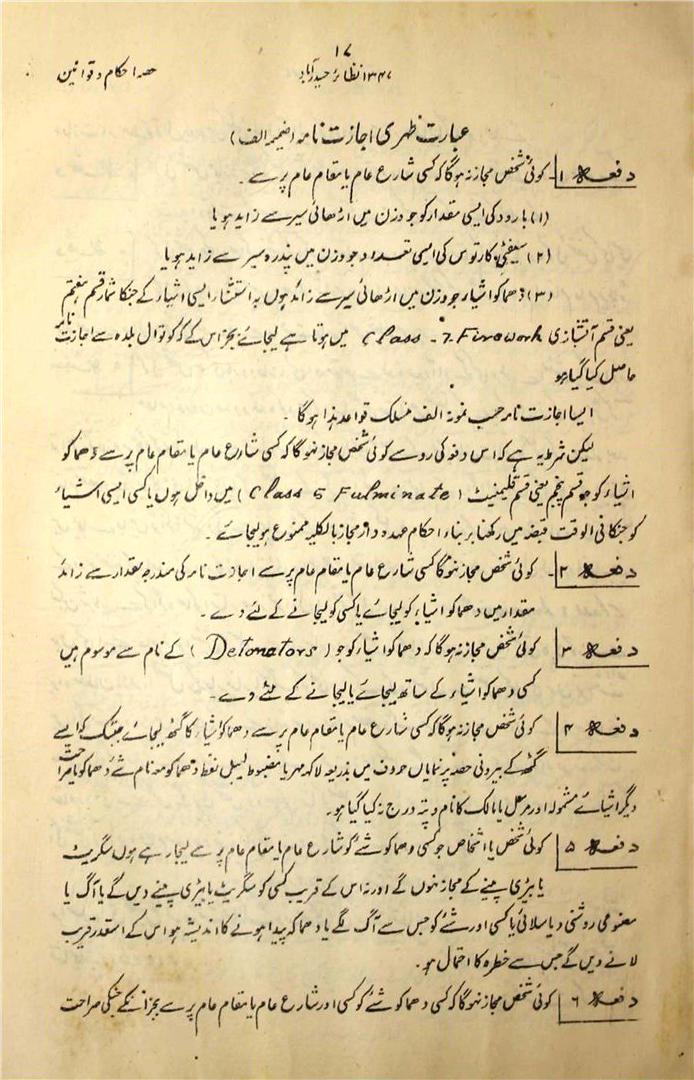 ۱۷
حصہ احکام و قوانین
۱۳۴۷ نظائر حیدرآباد
عبارت ظہری اجازت نامہ (ضمیمہ الف)
دفعہ ۱ - کوئی شخص مجاز نہ ہوگا کہ کسی شارع عام یا مقام عام پر سے -
(۱) بارود کی ایسی مقدار کو جو وزن میں اڑھائی سیر سے زاید ہو یا
(۲) سیفٹی کارتوس کی ایسی تعداد جو وزن میں پندرہ سیر سے زاید ہو یا
(۳) دھماکو اشیاء جو وزن میں اڑھائی سیر سے زائد ہوں بہ استثنا ایسی اشیاء کے جنکا شمار قسم ہفتم
یعنی قسم آتشبازی Class - 7 Firework میں ہوتا ہے لیجائے بجز اس کے کہ کوتوال بلدہ سے اجازت نامہ
حاصل کیا گیا ہو
ایسا اجازت نامہ حسب نمونہ الف منسلک قواعد ہذا ہوگا -
لیکن شرط یہ ہے کہ اس دفعہ کی رو سے کوئی شخص مجاز نہوگا کہ کسی شارع عام یا مقام عام پر سے دھماکو
اشیاء کو جو قسم پنجم یعنی قسم فلیمنیٹ (Class 5 Fulminate) میں داخل ہوں یا کسی ایسی اشیاء
کو جنکا فی الوقت قبضہ میں رکھنا بر بناء احکام عہدہ دار مجاز بالکلیہ ممنوع ہو لیجائے -
دفعہ ۲ - کوئی شخص مجاز نہوگا کسی شارع عام یا مقام عام پر سے اجازت نامہ کی مندرجہ مقدار سے زائد
مقدار میں دھماکو اشیاء کو لیجائے یا کسی کو لیجانے کے لئے دے -
دفعہ ۳ کوئی شخص مجاز نہ ہوگا کہ دھماکو اشیاء کو جو (Detonators) کے نام سے موسوم ہیں
کسی دھماکو اشیاء کے ساتھ لیجائے یا لیجانے کے لئے دے -
دفعہ ۴ کوئی شخص مجاز نہوگا کہ کسی شارع عام یا مقام عام پر سے دھماکو اشیاء کا گٹھ لیجائے جبتک کہ ایسے
گٹھ کے بیرونی حصہ پر نمایاں حروف میں بذریعہ لاکھ مہر یا مضبوط لیبل لفظ دھماکو معہ نام شئے دھماکو یا صراحت
دیگر اشیائے مشمولہ اور مرسل یا مالک کا نام و پتہ درج نہ کیا گیا ہو -
دفعہ ۵ کوئی شخص یا اشخاص جو کسی دھماکو شئے کو شارع عام یا مقام عام پر سے لیجا رہے ہوں سگریٹ
یا بیڑی پینے کے مجاز نہوں گے اور نہ اس کے قریب کسی کو سگریٹ یا بیڑی پینے دیں گے یا آگ یا
مصنوعی روشنی دیا سلائی یا کسی اور شئے کو جس سے آگ لگے یا دھماکہ پیدا ہونے کا اندیشہ ہو اس کے اسقدر قریب
لانے دیں گے جس سے خطرہ کا احتمال ہو -
دفعہ ۶ کوئی شخص مجاز نہوگا کہ کسی دھماکو شئے کو کسی اور شارع عام یا مقام عام پر سے بجز انکے جنکی صراحت